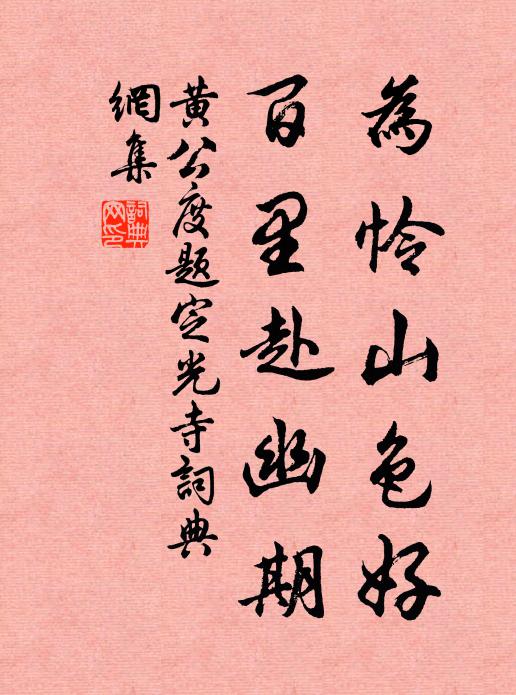 為怜山色好
百里赴幽期
黄公度題定光寺詞典
網集
詞典
网印